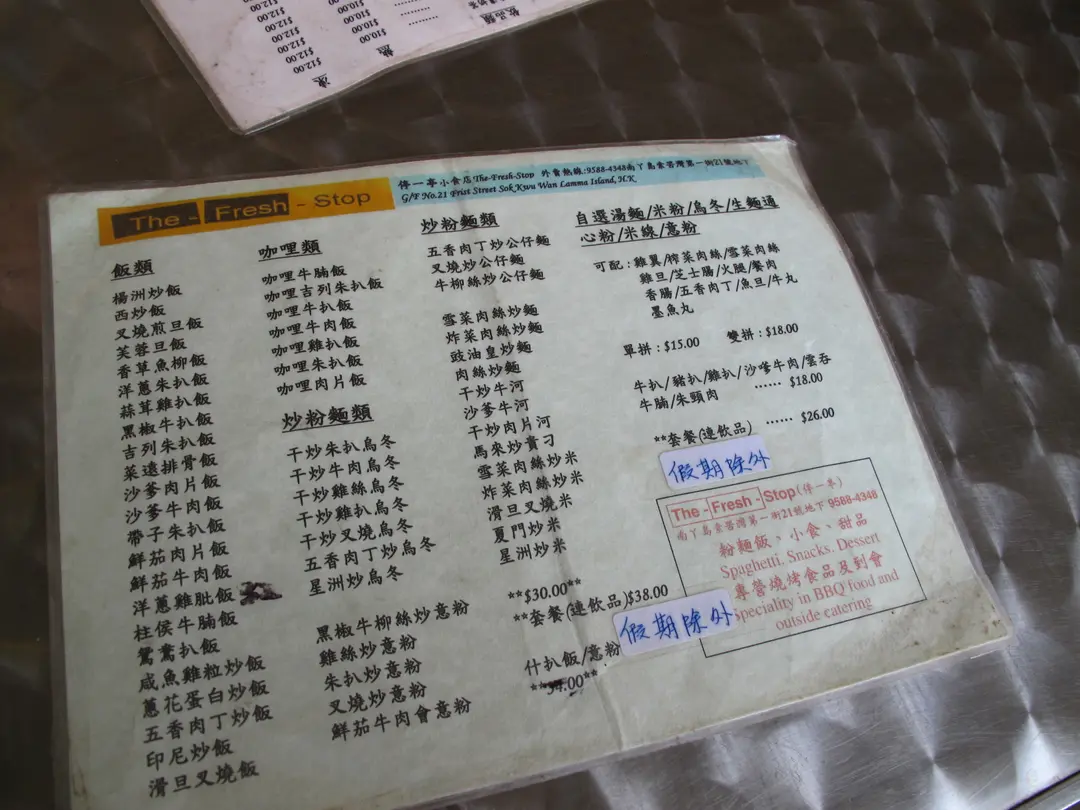 $12.00
$12.00
$12.00
$12.00
$12.00
凍
$10.00
$10.00
$10.00
熱
飲品類
The - Fresh - Stop
停一亭小食店The-Fresh-Stop 外賣熱線:9588-4348南丫島索罟灣第一街21號地下
G/F No.21 Frist Street Sok Kwu Wan Lamma Island, H.K
飯類
楊洲炒飯
西炒飯
叉燒煎旦飯
芙蓉旦飯
香草魚柳飯
洋蔥朱扒飯
蒜茸雞扒飯
黑椒牛扒飯
吉列朱扒飯
菜遠排骨飯
沙爹肉片飯
沙爹牛肉飯
帶子朱扒飯
鮮茄肉片飯
鮮茄牛肉飯
洋蔥雞肶飯
柱侯牛腩飯
鴛鴦扒飯
咸魚雞粒炒飯
蔥花蛋白炒飯
五香肉丁炒飯
印尼炒飯
滑旦叉燒飯
咖哩類
咖哩牛腩飯
咖哩吉列朱扒飯
咖哩牛扒飯
咖哩牛肉飯
咖哩雞扒飯
咖哩朱扒飯
咖哩肉片飯
炒粉麵類
干炒朱扒烏冬
干炒牛肉烏冬
干炒雞絲烏冬
干炒雞扒烏冬
干炒叉燒烏冬
五香肉丁炒烏冬
星洲炒烏冬
黑椒牛柳絲炒意粉
雞絲炒意粉
朱扒炒意粉
叉燒炒意粉
鮮茄牛肉會意粉
炒粉麵類
五香肉丁炒公仔麵
叉燒炒公仔麵
牛柳絲炒公仔麵
雪菜肉絲炒麵
炸菜肉絲炒麵
豉油皇炒麵
肉絲炒麵
干炒牛河
沙爹牛河
干炒肉片河
馬來炒貴刁
雪菜肉絲炒米
炸菜肉絲炒米
滑旦叉燒炒米
夏門炒米
星洲炒米
**$30.00**
**套餐(連飲品)$38.00
假期除外
什扒飯/意粉
自選湯麵/米粉/烏冬/生麵通
心粉/米線/意粉
可配:雞翼/榨菜肉絲/雪菜肉絲
雞旦/芝士腸/火腿/餐肉
香腸/五香肉丁/魚旦/牛丸
墨魚丸
單拼:$15.00 雙拼:$18.00
牛扒/豬扒/雞扒/沙爹牛肉/雲吞
牛腩/朱頸肉 ...... $18.00
**套餐(連飲品) ...... $26.00
假期除外
The - Fresh - Stop(停一亭)
南丫島索罟灣第一街21號地下 9588-4348
粉麵飯、小食、甜品
Spaghetti. Snacks. Dessert
專營燒烤食品及到會
Speciality in BBQ food and
outside catering